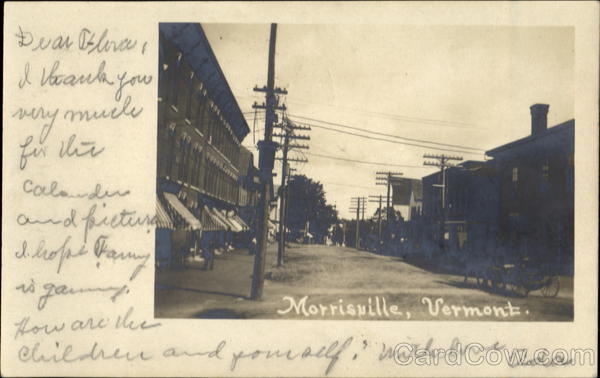 Dear Flora,
I thank you
very much
for the
Calander
and picture
I hope Fanny
is gaining.
How are the
Children and yourself? with love
Morrisville, Vermont.
CardCow.com